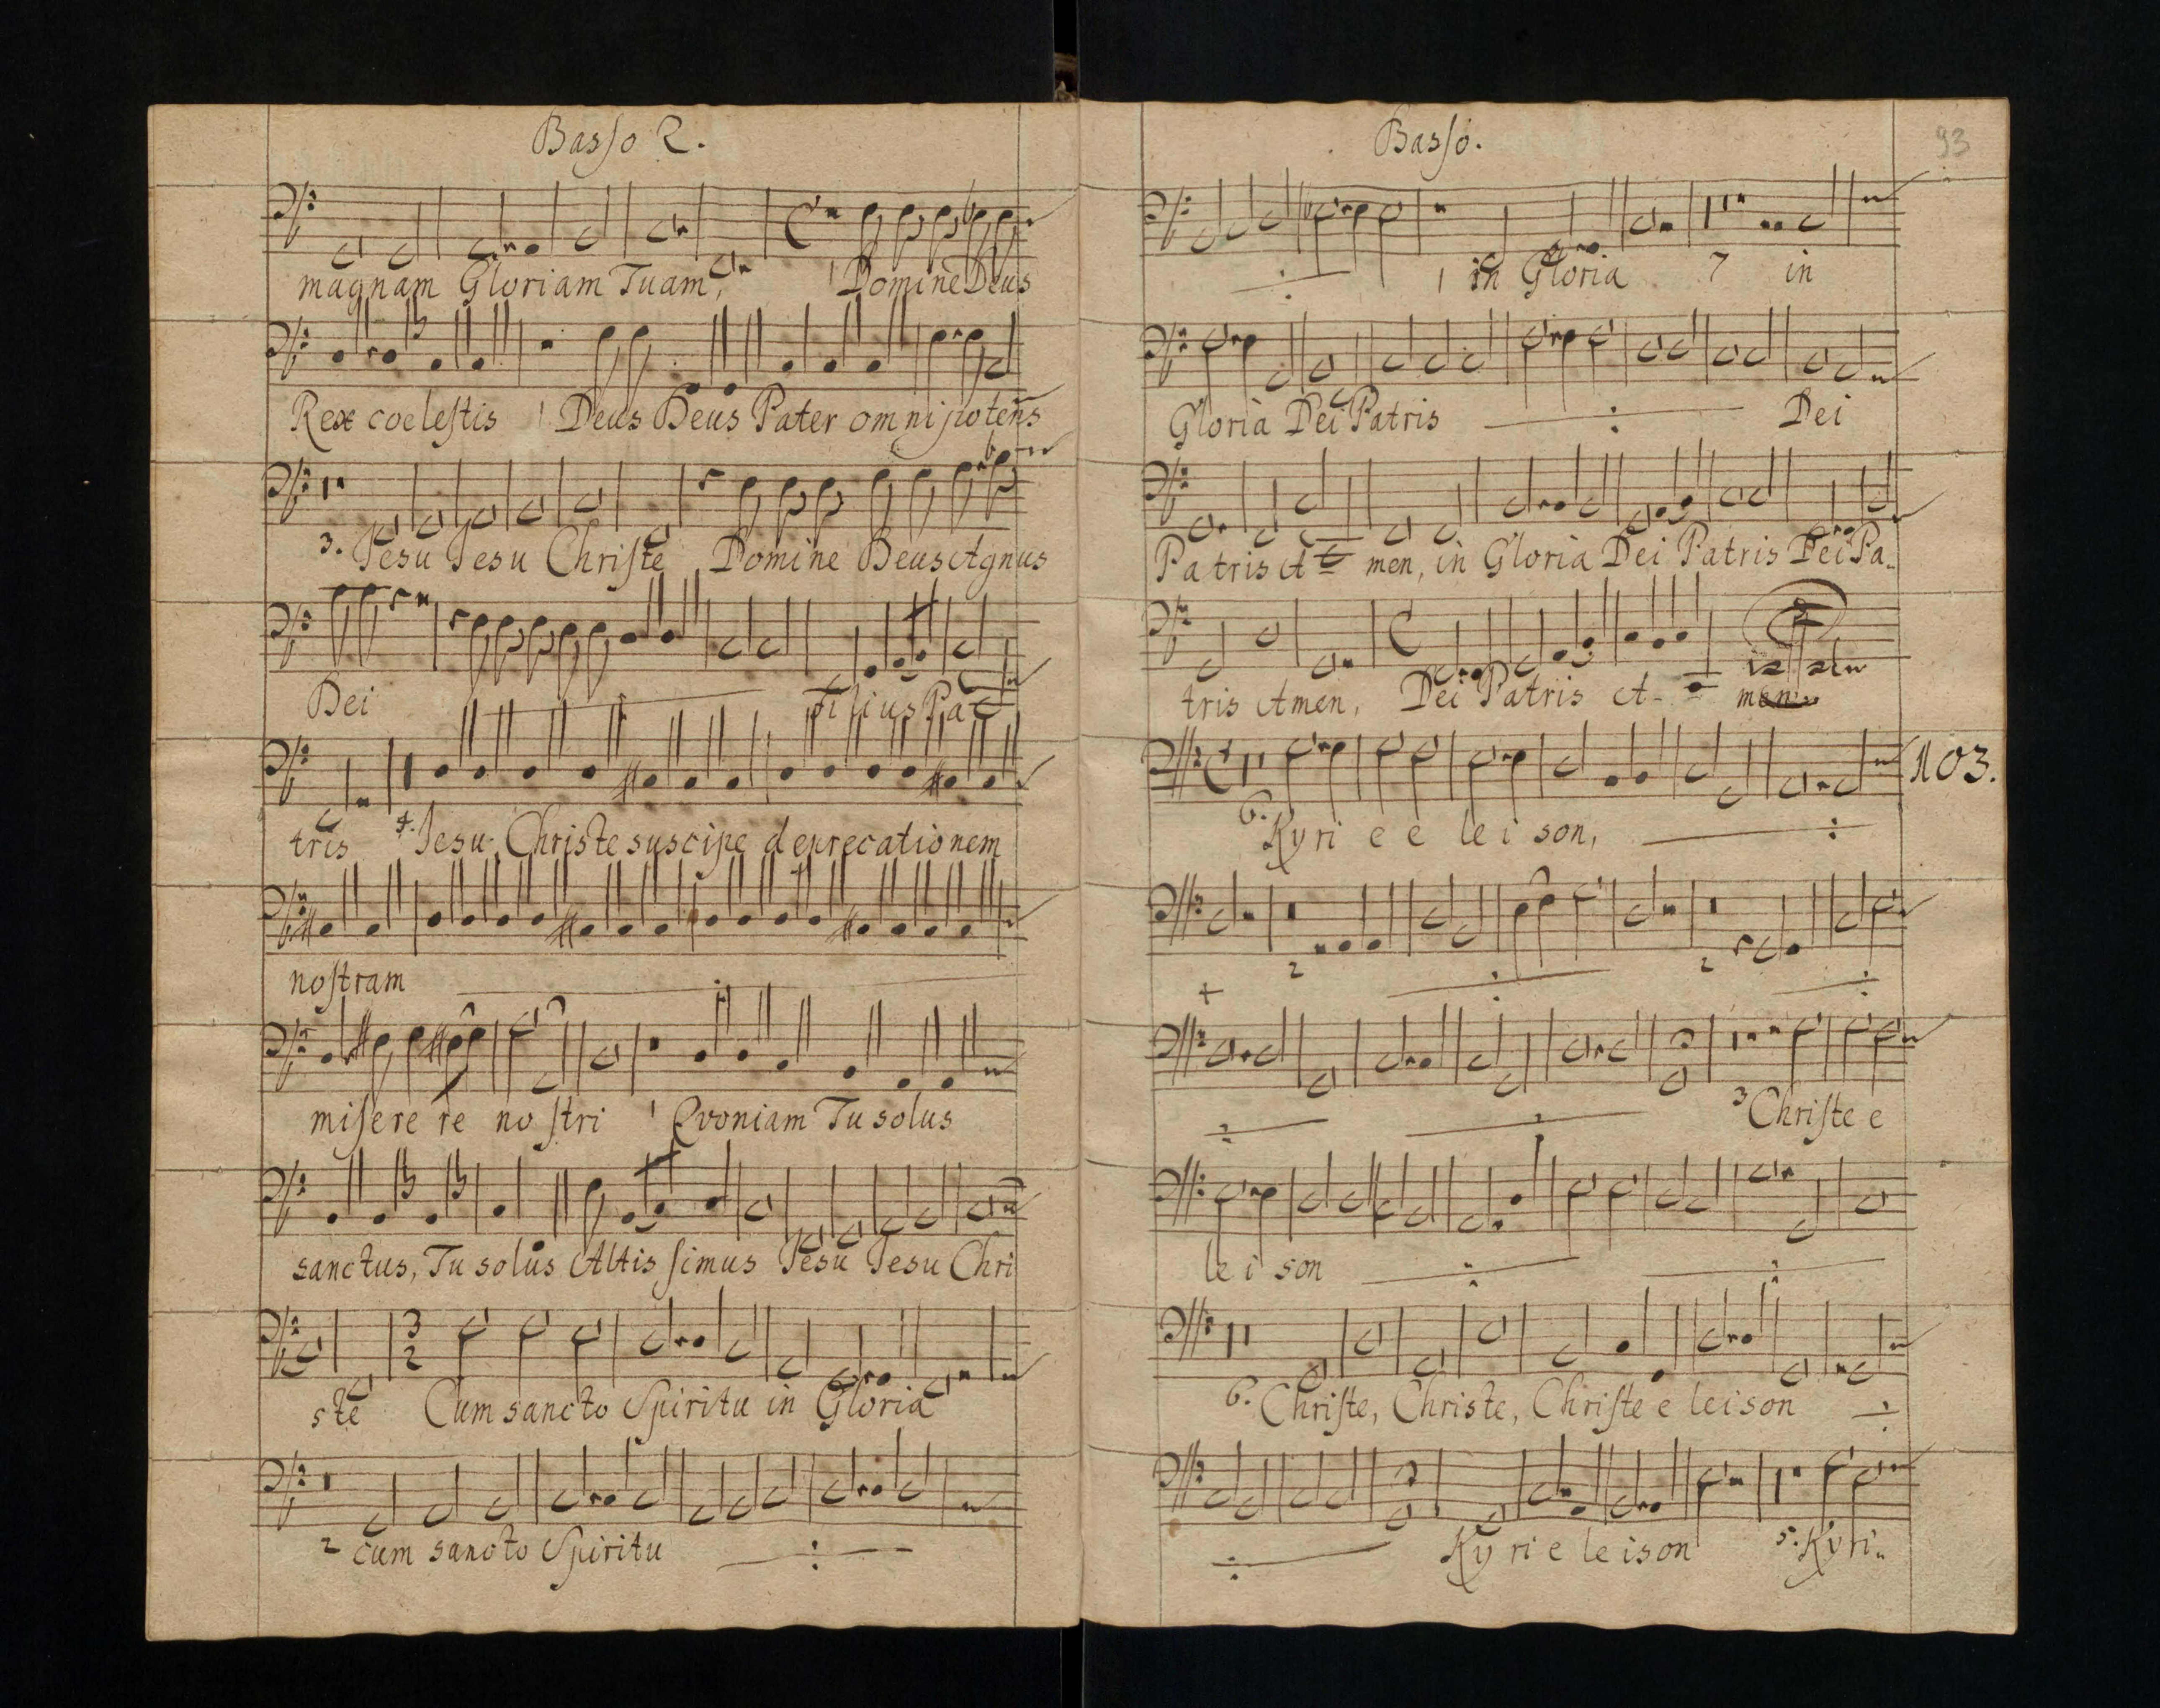 Basso 2.
magnam Gloriam Tuam, 1 Domine Deus
Rex coelestis 1 Deus Deus Pater omnipotens
3. Jesu Jesu Christe Domine Deus Agnus
Dei Filius Pa
tris 4. Jesu Christe suscipe deprecationem
nostram
miserere nostri 1 Qvoniam Tu solus
sanctus, Tu solus Altissimus Jesu Jesu Chri
ste 3 2 Cum sancto Spiritu in Gloria
2 cum sancto Spiritu
Basso. 93
1 in Gloria 7 in
Gloria Dei Patris Dei
Patris A men, in Gloria Dei Patris Dei Pa
tris Amen, Dei Patris A- men
103.
6. Kyri e e le i son,
2 2
3 Christe e
le i son
6. Christe, Christe, Christe e leison
Ky ri e le ison 5. Kyri